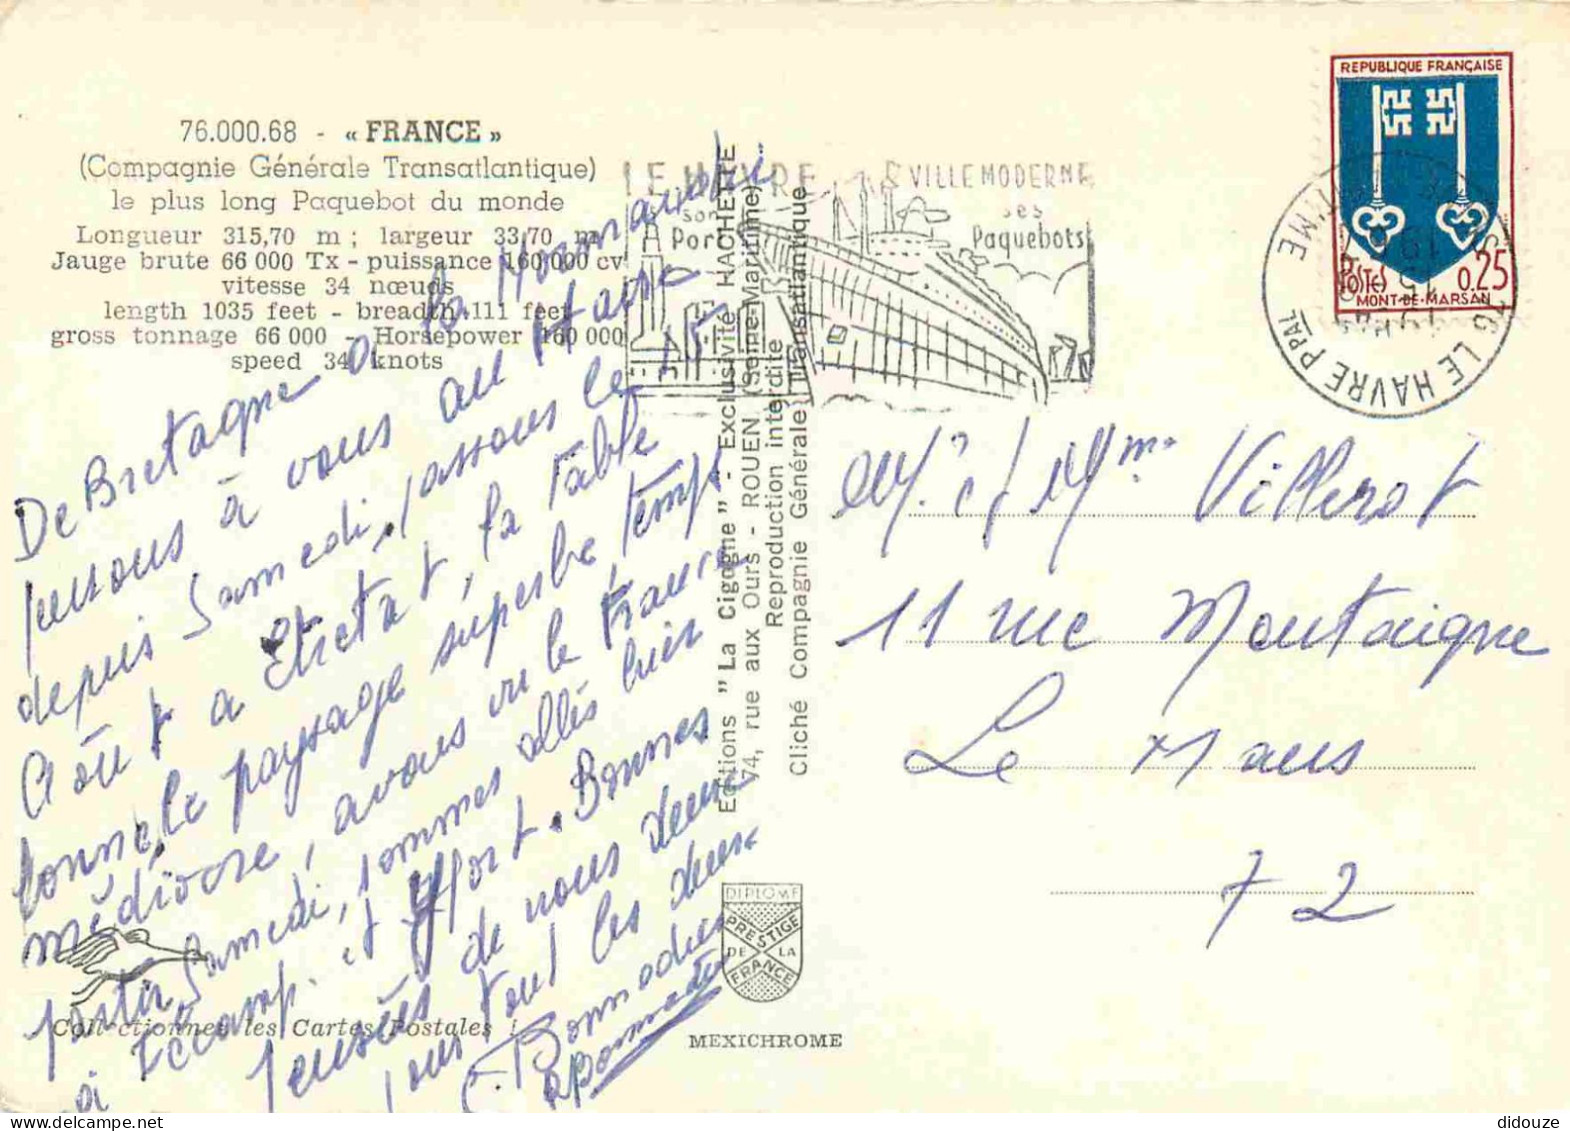 76.000.68 - « FRANCE »
(Compagnie Générale Transatlantique)
le plus long Paquebot du monde
Longueur 315,70 m ; largeur 33,70 m
Jauge brute 66 000 Tx - puissance 160.000 cv
vitesse 34 nœuds
length 1035 feet - breadth 111 feet
gross tonnage 66 000 - Horsepower 160 000
speed 34 knots
LE HAVRE VILLE MODERNE
son Port
ses Paquebots
REPUBLIQUE FRANÇAISE
POSTES 0,25
MONT-DE-MARSAN
76 LE HAVRE PPAL
De Bretagne a la Normandie
pensons à vous au Havre
depuis Samedi, passons le 15
Août a Etretat, la table
bonne, le paysage superbe, temps
médiocre, avons vu le France
partir Samedi, sommes allés hier
à Fécamp et Yport. Bonnes
pensées de nous deux
pour tous les deux
Editions "La Cigogne" - Exclusivité HACHETTE
74, rue aux Ours - ROUEN (Seine-Maritime)
Reproduction interdite
Cliché Compagnie Générale Transatlantique
Mr et Mme Villerot
11 rue Montaigne
Le Mans
72
DIPLOME
PRESTIGE
DE LA
FRANCE
Collectionnez les Cartes Postales !
MEXICHROME
didouze